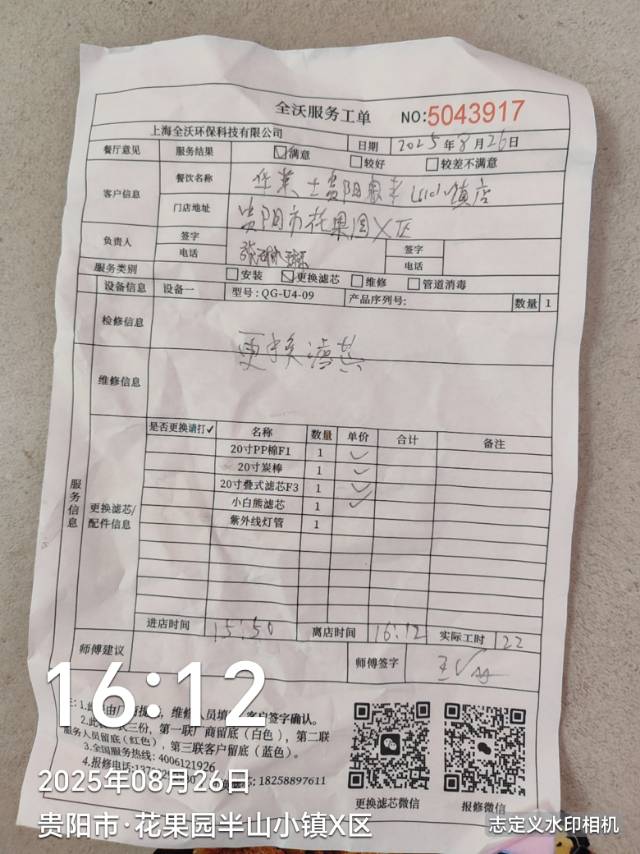 全沃服务工单 NO:5043917
上海全沃环保科技有限公司 日期 2025年8月26日
餐厅意见 服务结果 ☑满意 □较好 □较差不满意
客户信息 餐饮名称 镇店
门店地址 贵阳市花果园X区
负责人 签字 签字
电话 电话
服务类别 □安装 ☑更换滤芯 □维修 □管道消毒
设备信息 设备一 型号:QG-U4-09 产品序列号: 数量 1
检修信息 更换滤芯
维修信息
服务信息
更换滤芯/配件信息
是否更换请打✓ 名称 数量 单价 合计 备注
20寸PP棉F1 1 ✓
20寸炭棒 1 ✓
20寸叠式滤芯F3 1 ✓
小白熊滤芯 1 ✓
紫外线灯管 1
进店时间 15:50 离店时间 16:12 实际工时 22
师傅建议 师傅签字
16:12
员填 客户签字确认。
三份，第一联厂商留底（白色），第二联
服务人员留底（红色），第三联客户留底（蓝色）。
3.全国服务热线：4006121926
4.报修电话: 18258897611
更换滤芯微信 报修微信
2025年08月26日
贵阳市·花果园半山小镇X区
志定义水印相机